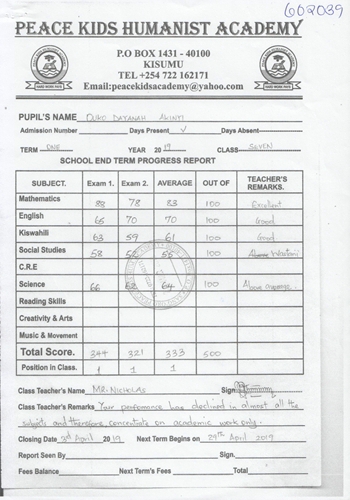 602039
PEACE KIDS HUMANIST ACADEMY
P.O BOX 1431 - 40100
KISUMU
TEL +254 722 162171
Email:peacekidsacademy@yahoo.com
HARD WORK PAYS HARD WORK PAYS
PUPIL'S NAME AKINYI
Admission Number Days Present ✓ Days Absent
TERM ONE YEAR 2019 CLASS SEVEN
SCHOOL END TERM PROGRESS REPORT
SUBJECT. Exam 1. Exam 2. AVERAGE OUT OF TEACHER'S REMARKS.
Mathematics 88 78 83 100 Excellent
English 65 70 70 100 Good
Kiswahili 63 59 61 100 Good
Social Studies 58 52 55 100
C.R.E
Science 66 62 64 100 Above average.
Reading Skills
Creativity & Arts
Music & Movement
Total Score. 344 321 333 500
Position in Class. 1 1 1
Class Teacher's Name MR. NICHOLAS Sign
Class Teacher's Remarks Your perfomance has declined in almost all the
subjects and therefore concentrate on academic work only.
Closing Date 3rd April 2019 Next Term Begins on 29th April 2019
Report Seen By Sign.
Fees Balance Next Term's Fees Total